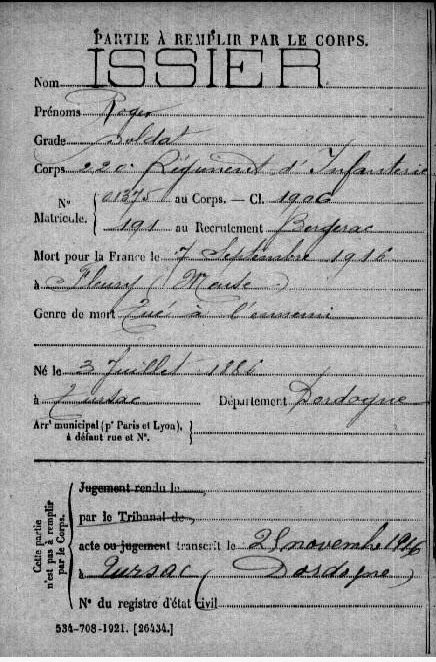 PARTIE À REMPLIR PAR LE CORPS.
Nom ISSIER
Prénoms Roger
Grade Soldat
Corps 220e Régiment d'Infanterie
N° Matricule. { 01375 au Corps. — Cl. 1906
191 au Recrutement Bergerac
Mort pour la France le 7 Septembre 1916
à Fleury (Meuse)
Genre de mort Tué à l'ennemi
Né le 3 Juillet 1886
à Tursac Département Dordogne
Arrt municipal (pr Paris et Lyon), à défaut rue et N°. }
Cette partie n'est pas à remplir par le Corps.
Jugement rendu le
par le Tribunal de
acte ou jugement transcrit le 25 novembre 1916
à Tursac (Dordogne)
N° du registre d'état civil
534-708-1921. [26434.]